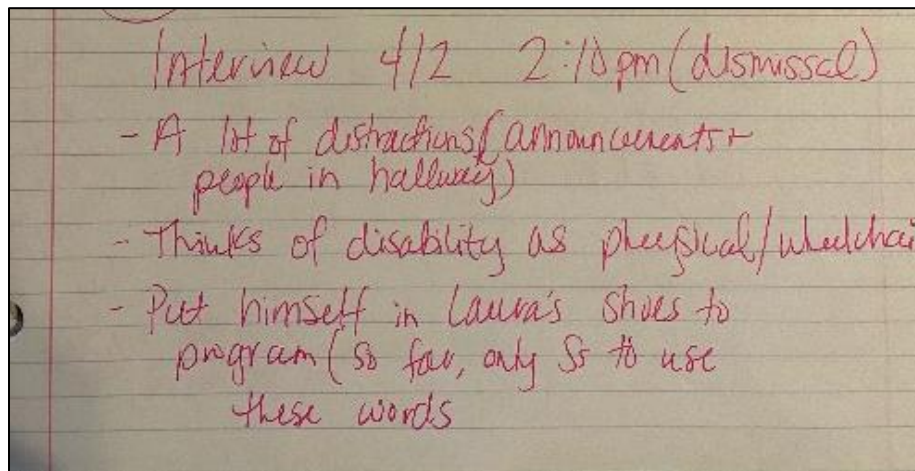 Interview 4/2 2:10pm (dismissal)
- A lot of distractions (announcements +
people in hallway)
- Thinks of disability as physical/wheelchai
- Put himself in Laura's shoes to
program (so far, only Ss to use
these words